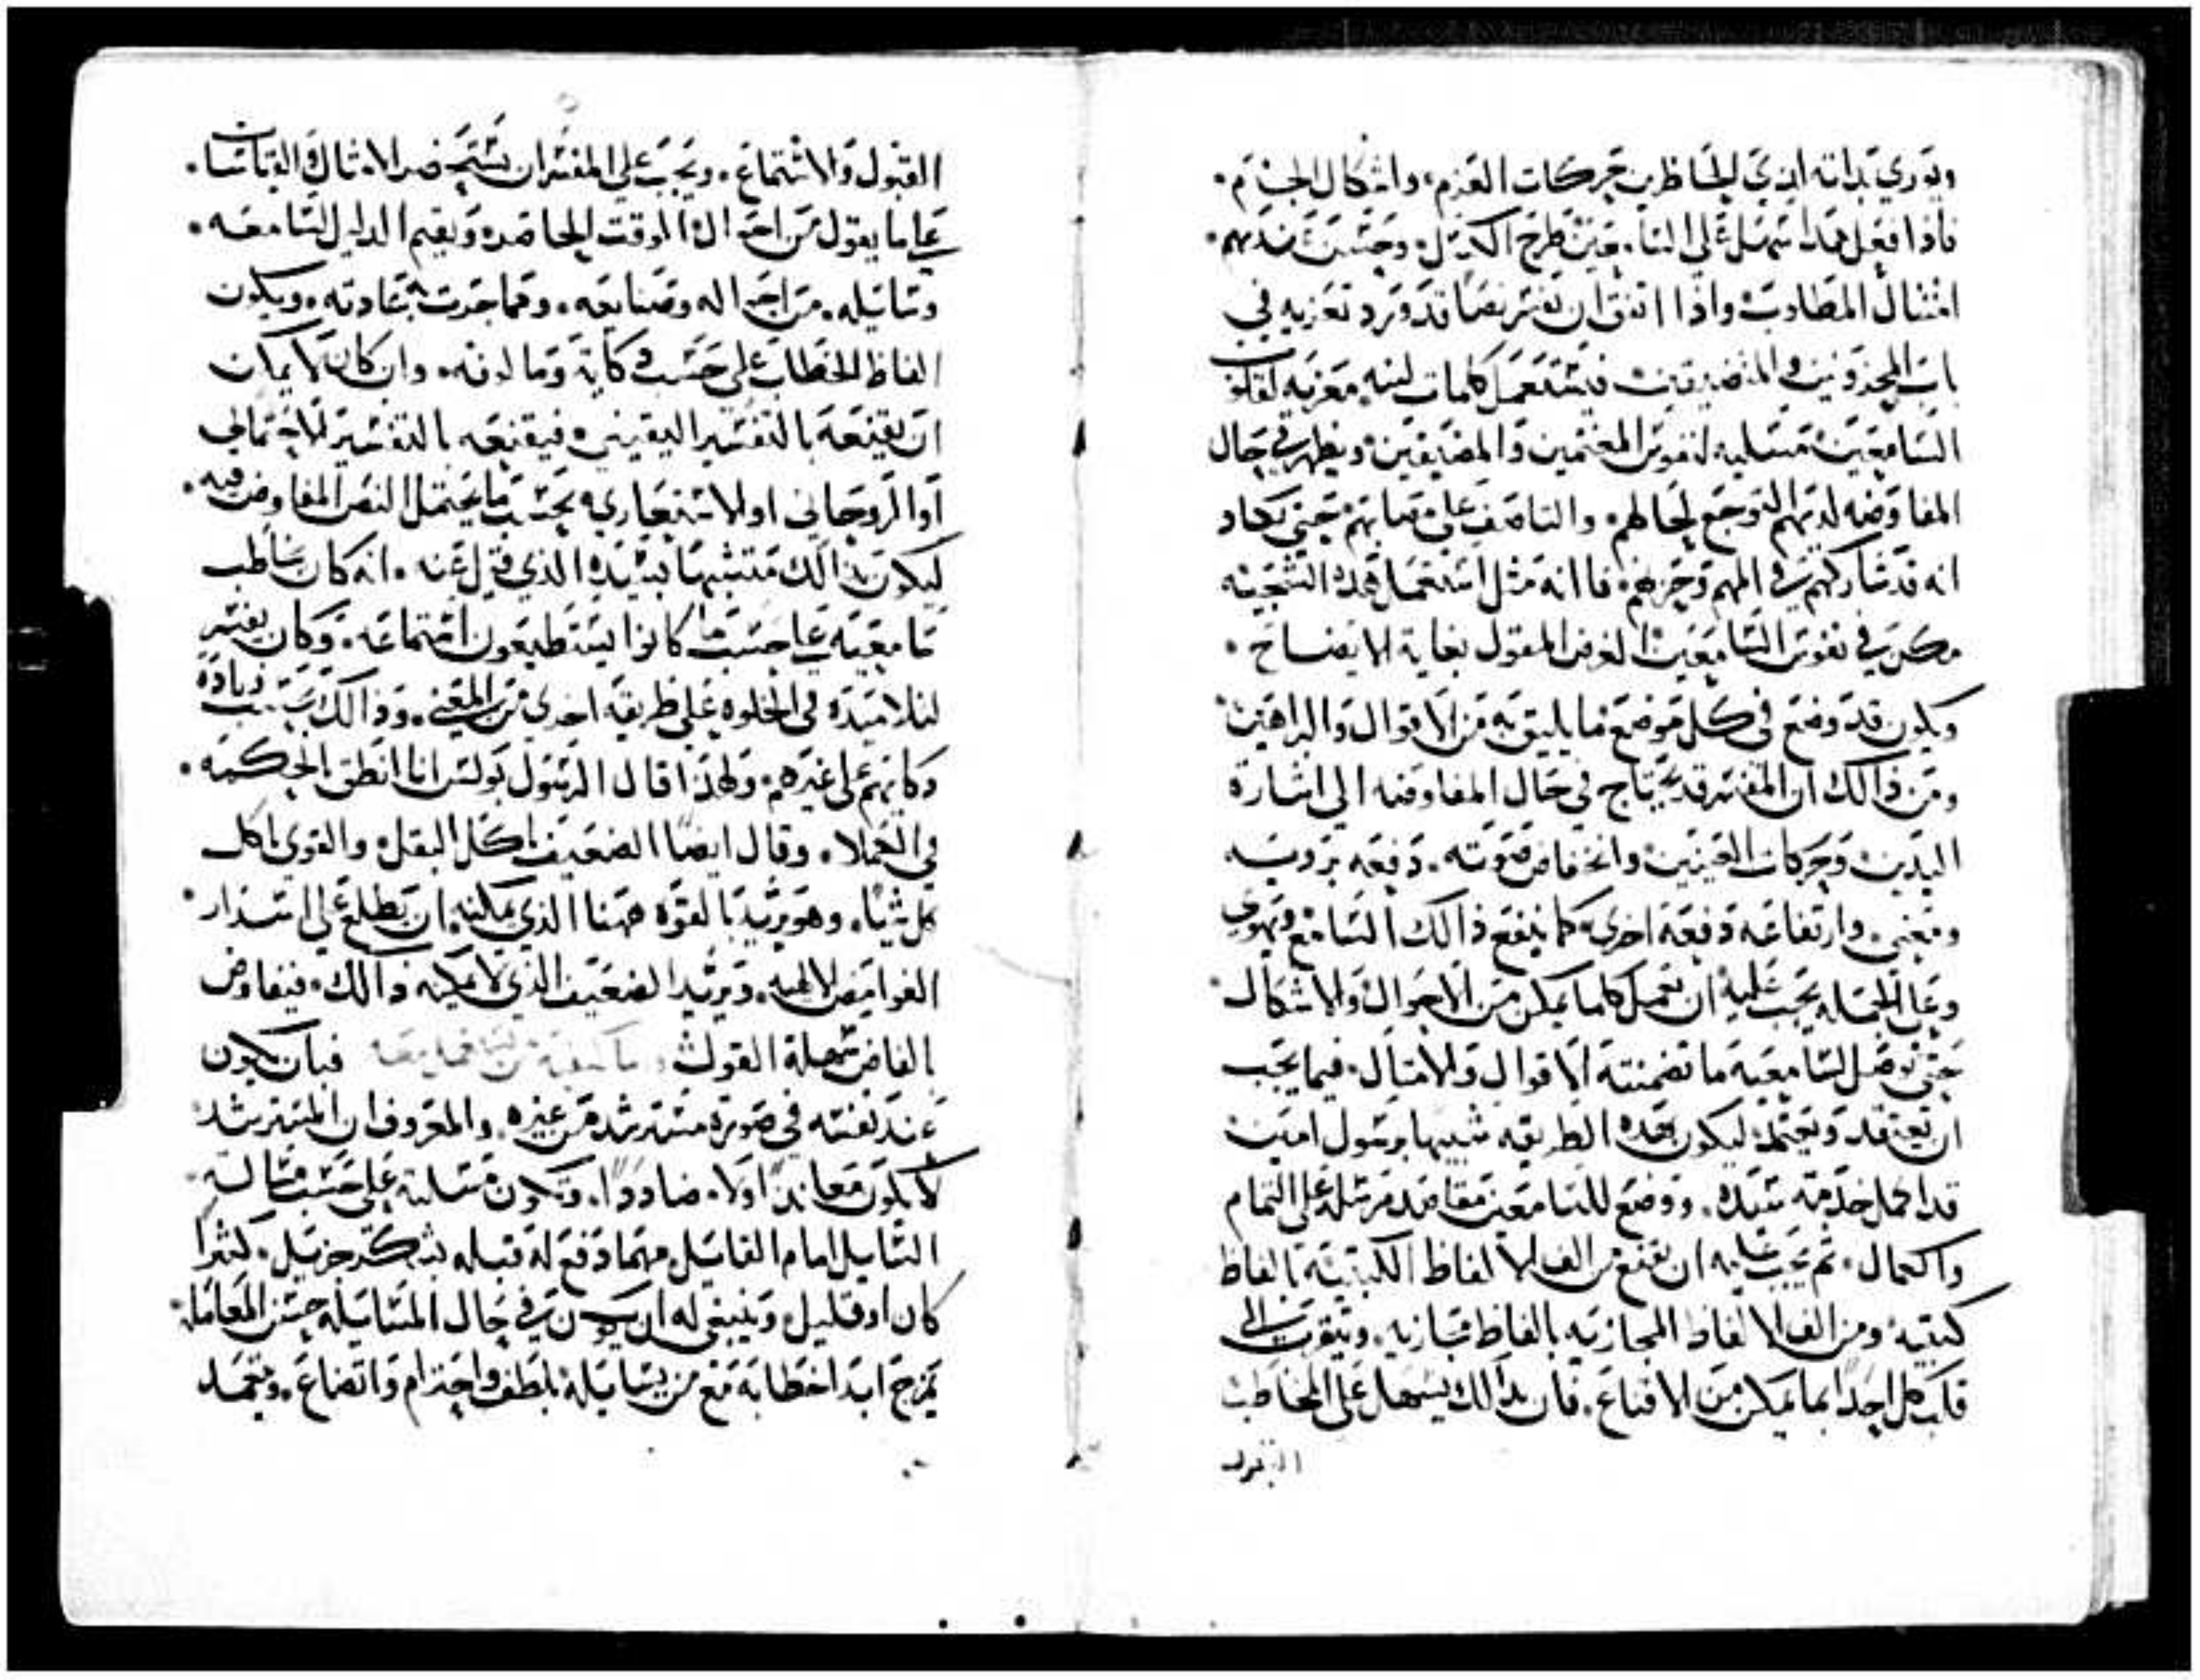 ويوري بذاته انه يري للحاظرين حركات العزم، واشكال الحزم.
فاذا فعل هذا سهل علي السا. حين طرح الكسل. وحسن عندهم.
امتثال المطلوب. واذا اتفق ان يفسر نصا قد ورد تعزيه في
باب المحزونين والمتضيقين. فيستعمل كلمات لينه معزيه لقلوب
السامعين. مسليه لنفوس المغتمين والمضيقين. ويظهر في حال
المفاوضه لديهم التوجع لحالهم. والتاصف علي مصابهم. حتي يكاد
انه قد شاركهم في الهم وحزنهم. فاانه مثل استعمل هذه السجيه
مكن في نفوس السامعين الغرض المقول بغاية الايضاح.
ويكون قد وضع في كل موضع ما يليق به من الاقوال والبراهين.
ومن ذالك ان المفسر قد يحتاج في حال المفاوضه الي اشارة
اليدين وحركات العينين وانخفاض صوته. دفعه بروسه
ومعني. وارتفاعه دفعه اخري. كما ينفع ذالك السامع ويهوي
وعلي الجمله يجب عليه ان يعمل كلما يمكن من الاحوال والاشكال.
حتي توصل لسامعيه ما تضمنته الاقوال والامثال. فيما يجب
ان يعتقد ويعتمد. ليكون بهذه الطريقه شبيها برسول امين
قد اكمل خدمة سيده. ووضع للسامعين مقاصد مرسله علي التمام
واكمال. ثم يجب عليه ان يقنع من الف الالفاظ الكتبيه بالفاظ
كتبيه. ومن الف الالفاظ المجازيه بالفاظ مجازيه. ويتقرب الي
قلب كل احدا بما يمكن من الاقناع. فان بذالك يسهل علي المخاطب
القبول
القبول والاستماع. ويجب علي المفسر ان يستحضر الامثال والقياسات.
علي ما يقول من احوال الوقت الحاضره ويقيم الدليل لسامعه.
وسايله. من احواله وصنايعه. ومما جرت به عادته. ويكون
الفاظ الخطاب علي حسب ذكايه وما لوفه. وان كان لا يمكن
ان يقنعه بالتفسير اليقيني. فيقنعه بالتفسير الاحتمالي
او الروحاني او الاستعاري. بحسب ما يحتمل النص المفاوض فيه.
ليكون بذالك متشبها بسيده الذي قيل عنه. انه كان يخاطب
سامعيه علي حسب ما كانوا يستطيعون استماعه. وكان يفسر
لتلاميذه في الخلوه علي طريقه اخري من المعني. وذالك بسبب زيادة
ذكايهم علي غيرهم. ولهذا قال الرسول بولس انا انطق الحكمه.
في الكملا. وقال ايضا الضعيف ياكل البقل. والقوي ياكل
كل شيا. وهو يريد بالقوه ههنا الذي يمكنه ان يطلع علي اسرار.
الغوامض الالهيه. ويريد الضعيف الذي لا يمكنه ذالك. فيفاوض
بالفاض سهلة القول. فبان يكون
عند نفسه في صورة مسترشد من غيره. والمعروف ان المسترشد
لا يكون معاندا ولا. مضاددا. وتكون مسايلته علي حسب مثاله
السايل امام القايل مهما دفع له قبله بشكر جزيل. كثيرا
كان او قليل. وينبغي له ان يكون في حال المسايله حسن المعامله.
يمزج ابدا خطابه مع من يسايله بلطف واحترام واتضاع. ويتعمد